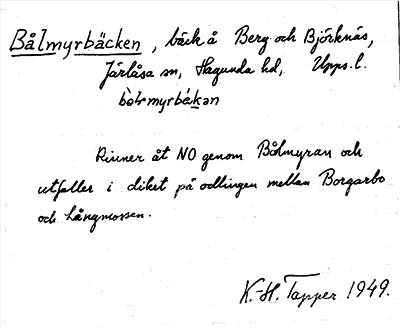 Bålmyrbäcken, bäck å Berg och Björknäs,
Järlåsa sn, Hagunda hd, Upps. l.
Rinner åt NO genom Bålmyran och
utfaller i diket på odlingen mellan Borgarbo
och Långmossen.
K.-H. Tapper 1949.